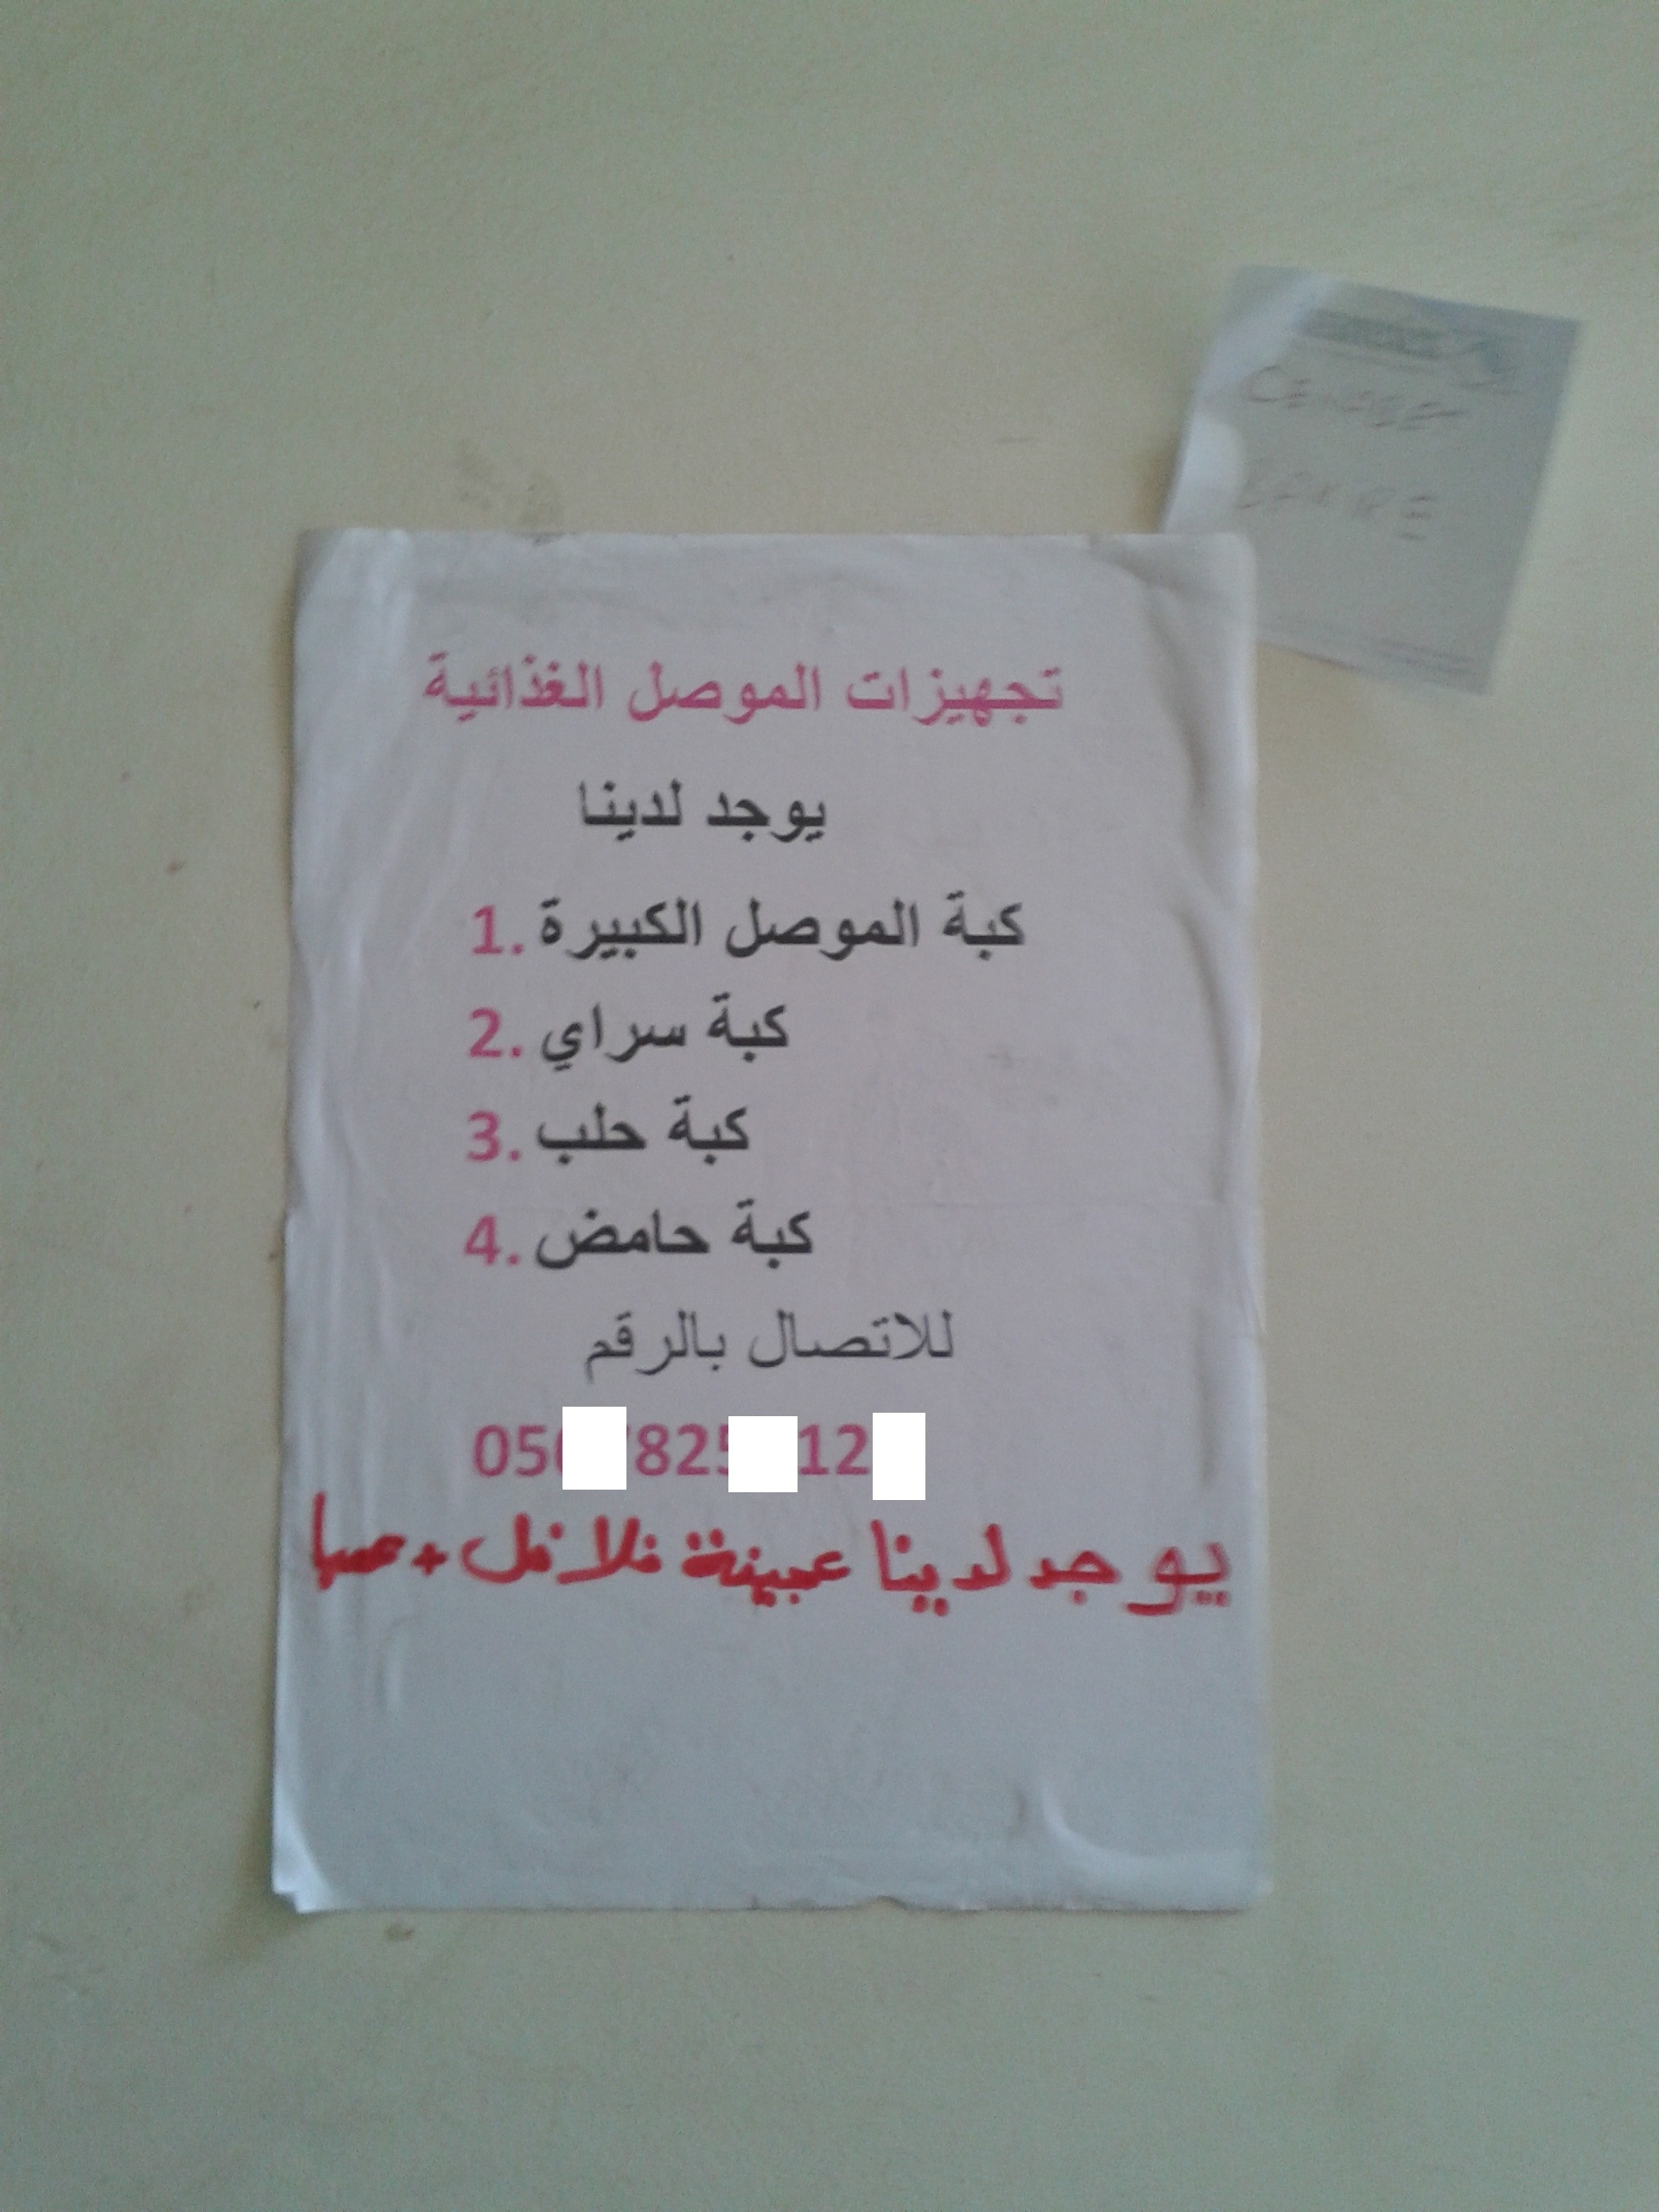 تجهيزات الموصل الغذائية
يوجد لدينا
1. كبة الموصل الكبيرة
2. كبة سراي
3. كبة حلب
4. كبة حامض
للاتصال بالرقم
05 825 12
يوجد لدينا عجينة فلافل +